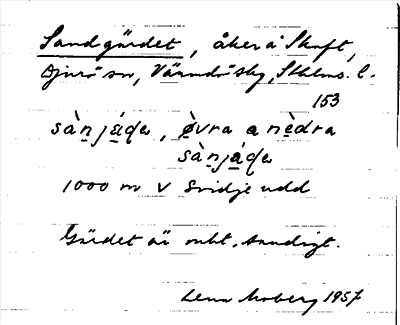 Sandgärdet, åker å Skaft,
Djurö sn, Värmdö skg, Sthlms. l.
153
sànjá̱de, ø̀vra a nèdra
sànjá̱de
1000 m V Svidje udd
Gärdet är mkt. sandigt.
Lena Moberg 1957